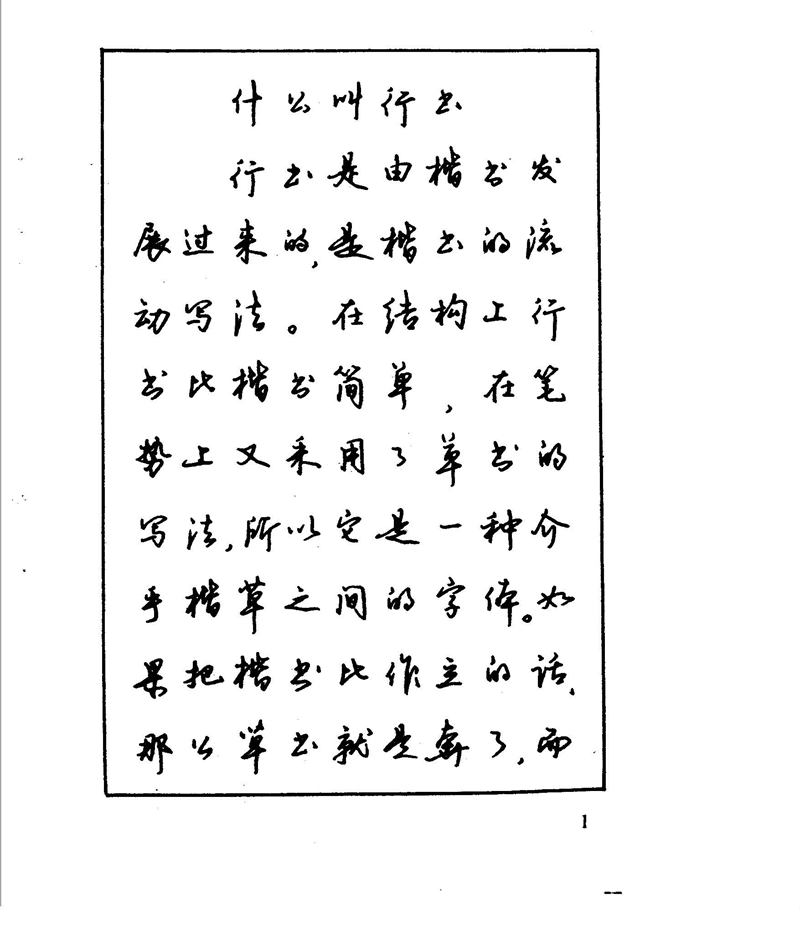 什么叫行书
行书是由楷书发
展过来的,是楷书的流
动写法。在结构上行
书比楷书简单,在笔
势上又采用了草书的
写法,所以它是一种介
乎楷草之间的字体。如
果把楷书比作立的话、
那么草书就是奔了,而
1